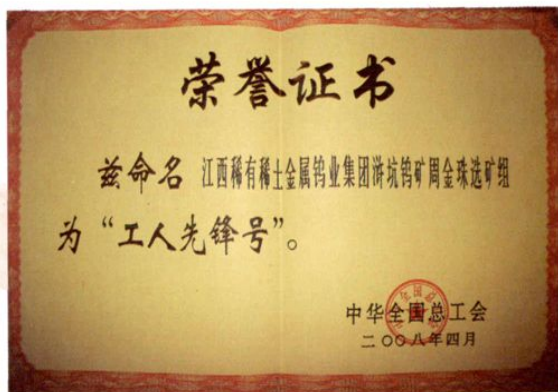 荣誉证书
兹命名 江西稀有稀土金属钨业集团浒坑钨矿周金珠选矿组
为“工人先锋号”。
中华全国总工会
二〇〇八年四月